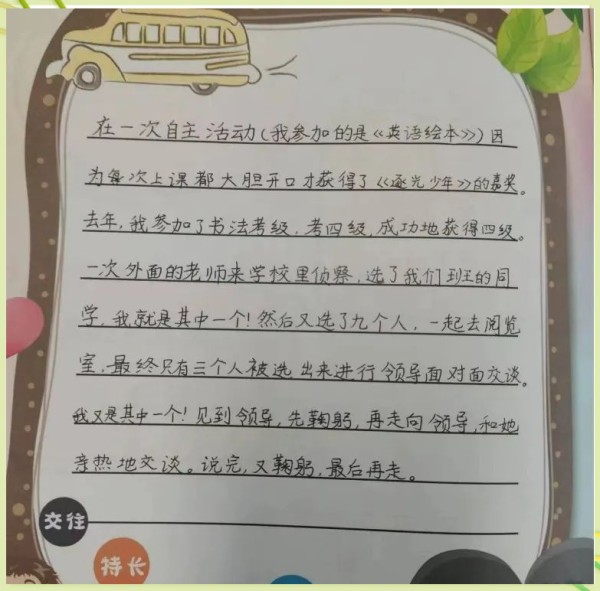 在一次自主活动(我参加的是《英语绘本》)因
为每次上课都大胆开口才获得了《逐光少年》的嘉奖。
去年,我参加了书法考级,考四级,成功地获得四级。
一次外面的老师来学校里侦察,选了我们班的同
学,我就是其中一个!然后又选了九个人,一起去阅览
室,最终只有三个人被选出来进行领导面对面交谈。
我又是其中一个!见到领导,先鞠躬,再走向领导,和她
亲热地交谈。说完,又鞠躬,最后再走。
交往
特长